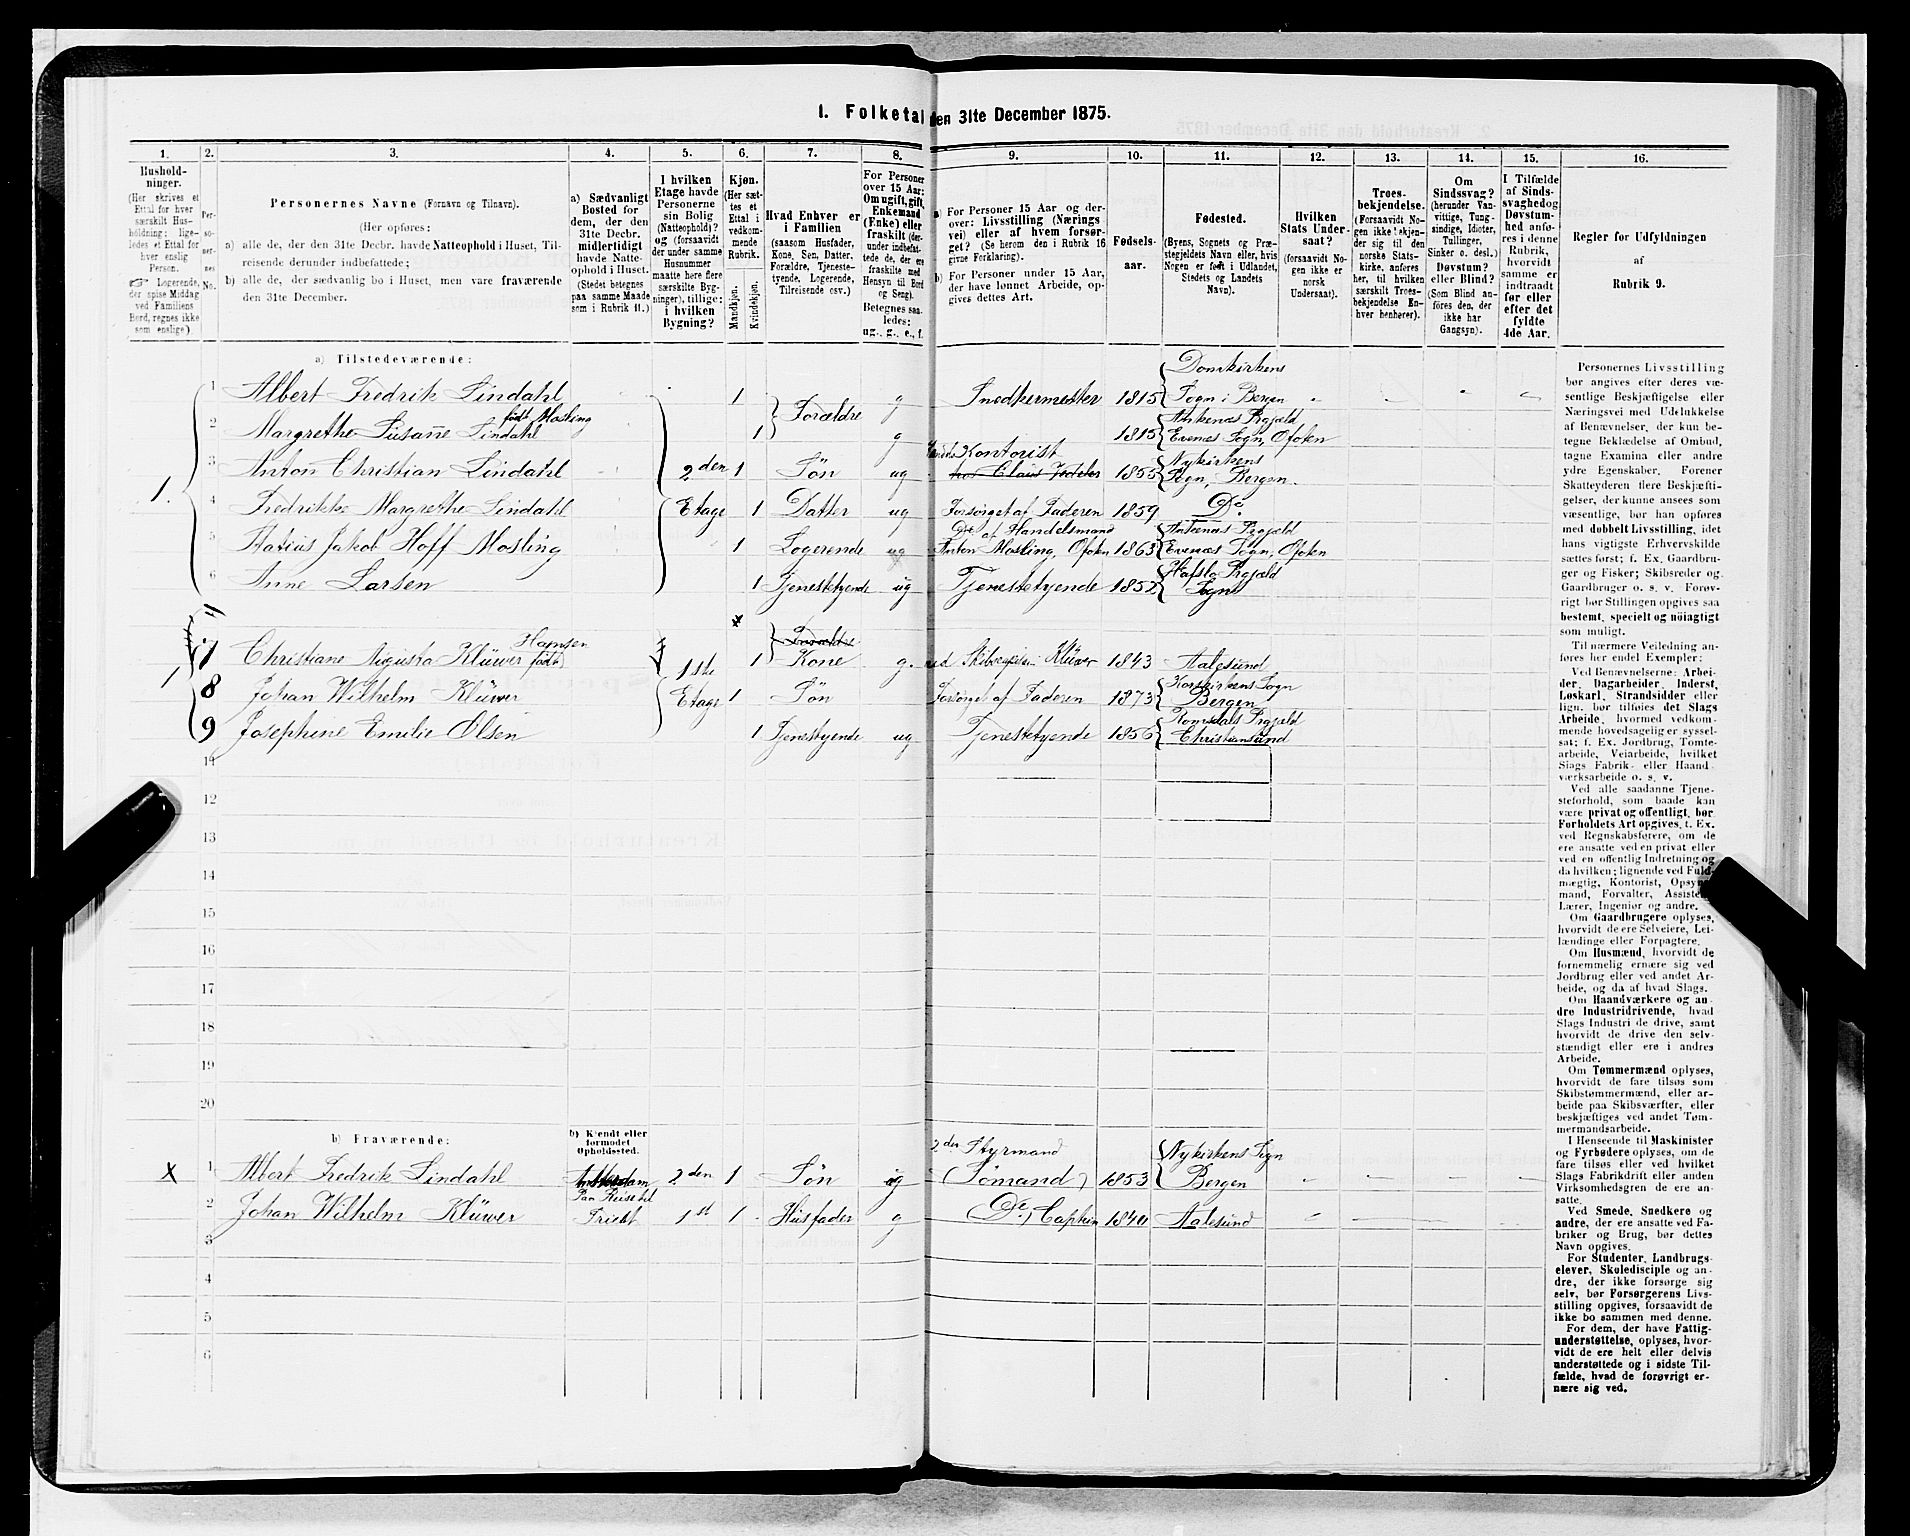 1. Folketal den 31te December 1875.
1. 2. 3. 4. 5. 6. 7. 8. 9. 10. 11. 12. 13. 14. 15. 16.
Hushold-
ninger.
(Her skrives et
Ettal for hver
særskilt Hus-
holdning; lige-
ledes et Ettal for
hver enslig
Person.
☞ Logerende,
der spise Middag
ved Familiens
Bord, regnes ikke
som enslige).
Per-
so-
ner-
nes
No.
Personernes Navne (Fornavn og Tilnavn).
(Her opføres:
a) alle de, der den 31te Decbr. havde Natteophold i Huset, Til-
reisende derunder indbefattede;
b) alle de, der sædvanlig bo i Huset, men vare fraværende
den 31te December.
a) Sædvanligt
Bosted for
dem, der den
31te Decbr.
midlertidigt
havde Natte-
ophold i Huset.
(Stedet betegnes
paa samme Maade
som i Rubrik 11.)
I hvilken
Etage havde
Personerne
sin Bolig
(Natteophold)?
og (forsaavidt
der under samme
Husnummer
maatte høre flere
særskilte Byg-
ninger), tillige:
i hvilken
Bygning?
Kjøn.
(Her sæt-
tes et
Ettal i
vedkom-
mende
Rubrik.
Mandkjøn.
Kvindekjøn.
Hvad Enhver er
i Familien
(saasom Husfader,
Kone, Søn, Datter,
Forældre, Tjeneste-
tyende, Logerende,
Tilreisende osv.)
For Personer
over 15 Aar:
Om ugift, gift,
Enkemand
(Enke) eller
fraskilt (der-
under indbefat-
tede de, der ere
fraskilte med
Hensyn til Bord
og Seng).
Betegnes saa-
ledes:
ug., g., e., f.
a) For Personer 15 Aar og der-
over: Livsstilling (Nærings
vei) eller af hvem forsør-
get? (Se herom den i Rubrik 16
givne Forklaring).
b) For Personer under 15 Aar,
der have lønnet Arbeide, op-
gives dettes Art.
Fødsels-
aar.
Fødested.
(Byens, Sognets og Præ-
stegjeldets Navn eller, hvis
Nogen er født i Udlandet,
Stedets og Landets
Navn).
Hvilken
Stats Under-
saat?
(forsaavidt No-
gen ikke er
norsk
Undersaat).
Troes-
bekjendelse.
(Forsaavidt No-
gen ikke bekjen-
der sig til den
norske Stats-
kirke, anføres
her, til hvilken
særskilt Troes-
bekjendelse En-
hver henhører).
Om
Sindssvag?
(herunder Van-
vittige, Tung-
sindige, Idioter,
Tullinger,
Sinker o. desl.)
Døvstum?
eller Blind?
(Som Blind an-
føres den, der
ikke har
Gangsyn).
I Tilfælde
af Sinds-
svaghed og
Døvstum-
hed anfø-
res i denne
Rubrik,
hvorvidt
samme er
indtraadt
før eller
efter det
fyldte
4de Aar.
Regler for Udfyldningen
af
Rubrik 9.
a) Tilstedeværende:
1 Albert Fredrik Lindahl 1 Forældre g Snedkermester 1815 Domkirkens Sogn i Bergen
2 Margrethe Susanne Lindahl født Mosling 1 g 1815 Evenæs Sogn, Ofoten
1. 3 Anton Christian Lindahl 2den 1 Søn ug Kontorist 1855 Nykirkens Sogn, Bergen
4 Fredrikke Margrethe Lindahl Etage 1 Datter ug Forsørget af Faderen 1859 Do.
5 Statius Jakob Hoff Mosling 1 Logerende ug Do af Handelsmand Anton Mosling, Ofoten 1863 Evenæs Sogn, Ofoten
6 Anne Larsen 1 Tjenestetyende ug Tjenestetyende 1852 Hafslo Prgjæld Sogn
7 Christiane Augusta Klüwer født Hansen 1ste 1 Kone g. Skibscaptein Klüwer 1843 Aalesund
1 8 Johan Wilhelm Klüwer Etage 1 Søn Forsørget af Faderen 1873 Korskirkens Sogn Bergen
9 Josephine Emilie Olsen 1 Tjenestyende ug Tjenestetyende 1856 Romsdals Prgjæld Christiansund
11
12
13
14
15
16
17
18
19
20
b) Fraværende:
b) Kjendt eller
formodet
Opholdssted.
x 1 Albert Fredrik Lindahl Amsterdam 2den 1 Søn ug 2den Styrmand (Sømand) 1853 Nykirkens Sogn Bergen
2 Johan Wilhelm Klüwer Paa Reise til Triest 1st 1 Husfader g Do, Captein 1840 Aalesund
3
4
5
6
Personernes Livsstilling
bør angives efter deres væ-
sentlige Beskjæftigelse eller
Næringsvei med Udelukkelse
af Benævnelser, der kun be-
tegne Beklædelse af Ombud,
tagne Examina eller andre
ydre Egenskaber. Forener
Skatteyderen flere Beskjæfti-
gelser, der kunne ansees som
væsentlige, bør han opføres
med dobbelt Livsstilling, idet
hans vigtigste Erhvervskilde
sættes først; f. Ex. Gaardbru-
ger og Fisker; Skibsreder og
Gaardbruger o. s. v. Forøv-
rigt bør Stillingen opgives saa
bestemt, specielt og nøiagtigt
som muligt.
Til nærmere Veiledning an-
føres her endel Exempler:
Ved Benævnelserne: Arbei-
der, Dagarbeider, Inderst,
Løskarl, Strandsidder eller
lign. bør tilføies det Slags
Arbeide, hvormed vedkom-
mende hovedsagelig er syssel-
sat; f. Ex. Jordbrug, Tomte-
arbeide, Veiarbeide, hvilket
Slags Fabrik- eller Haand-
værksarbeide o. s. v.
Ved alle saadanne Tjene-
steforhold, som baade kan
være privat og offentligt, bør
Forholdets Art opgives, t. Ex.
ved Regnskabsførere, om de
ere ansatte ved en privat eller
ved en offentlig Indretning og
da hvilken; lignende ved Fuld-
mægtig, Kontorist, Opsyns-
mand, Forvalter, Assistent,
Lærer, Ingeniør og andre.
Om Gaardbrugere oplyses,
hvorvidt de ere Selveiere, Lei-
lændinge eller Forpagtere.
Om Husmænd, hvorvidt de
fornemmelig ernære sig ved
Jordbrug eller ved andet Ar-
beide, og da af hvad Slags.
Om Haandværkere og an-
dre Industridrivende, hvad
Slags Industri de drive, samt
hvorvidt de drive den selv-
stændigt eller ere i andres
Arbeide.
Om Tømmermænd oplyses,
hvorvidt de fare tilsøs som
Skibstømmermænd, eller ar-
beide paa Skibsværfter, eller
beskjæftiges ved andet Tøm-
mermandsarbeide.
I Henseende til Maskinister
og Fyrbødere oplyses, om de
fare tilsøs eller ved hvilket
Slags Fabrikdrift eller anden
Virksomhedsgren de ere an-
satte.
Ved Smede, Snedkere og
andre, der ere ansatte ved Fa-
briker og Brug, bør dettes
Navn opgives.
For Studenter, Landbrugs-
elever, Skoledisciple og an-
dre, der ikke forsørge sig
selv, bør Forsørgerens Livs-
stilling opgives, forsaavidt de
ikke bo sammen med denne.
For dem, der have Fattig-
understøttelse, oplyses, hvor-
vidt de ere helt eller delvis
understøttede og i sidste Til-
fælde, hvad de forøvrigt er-
nære sig ved.